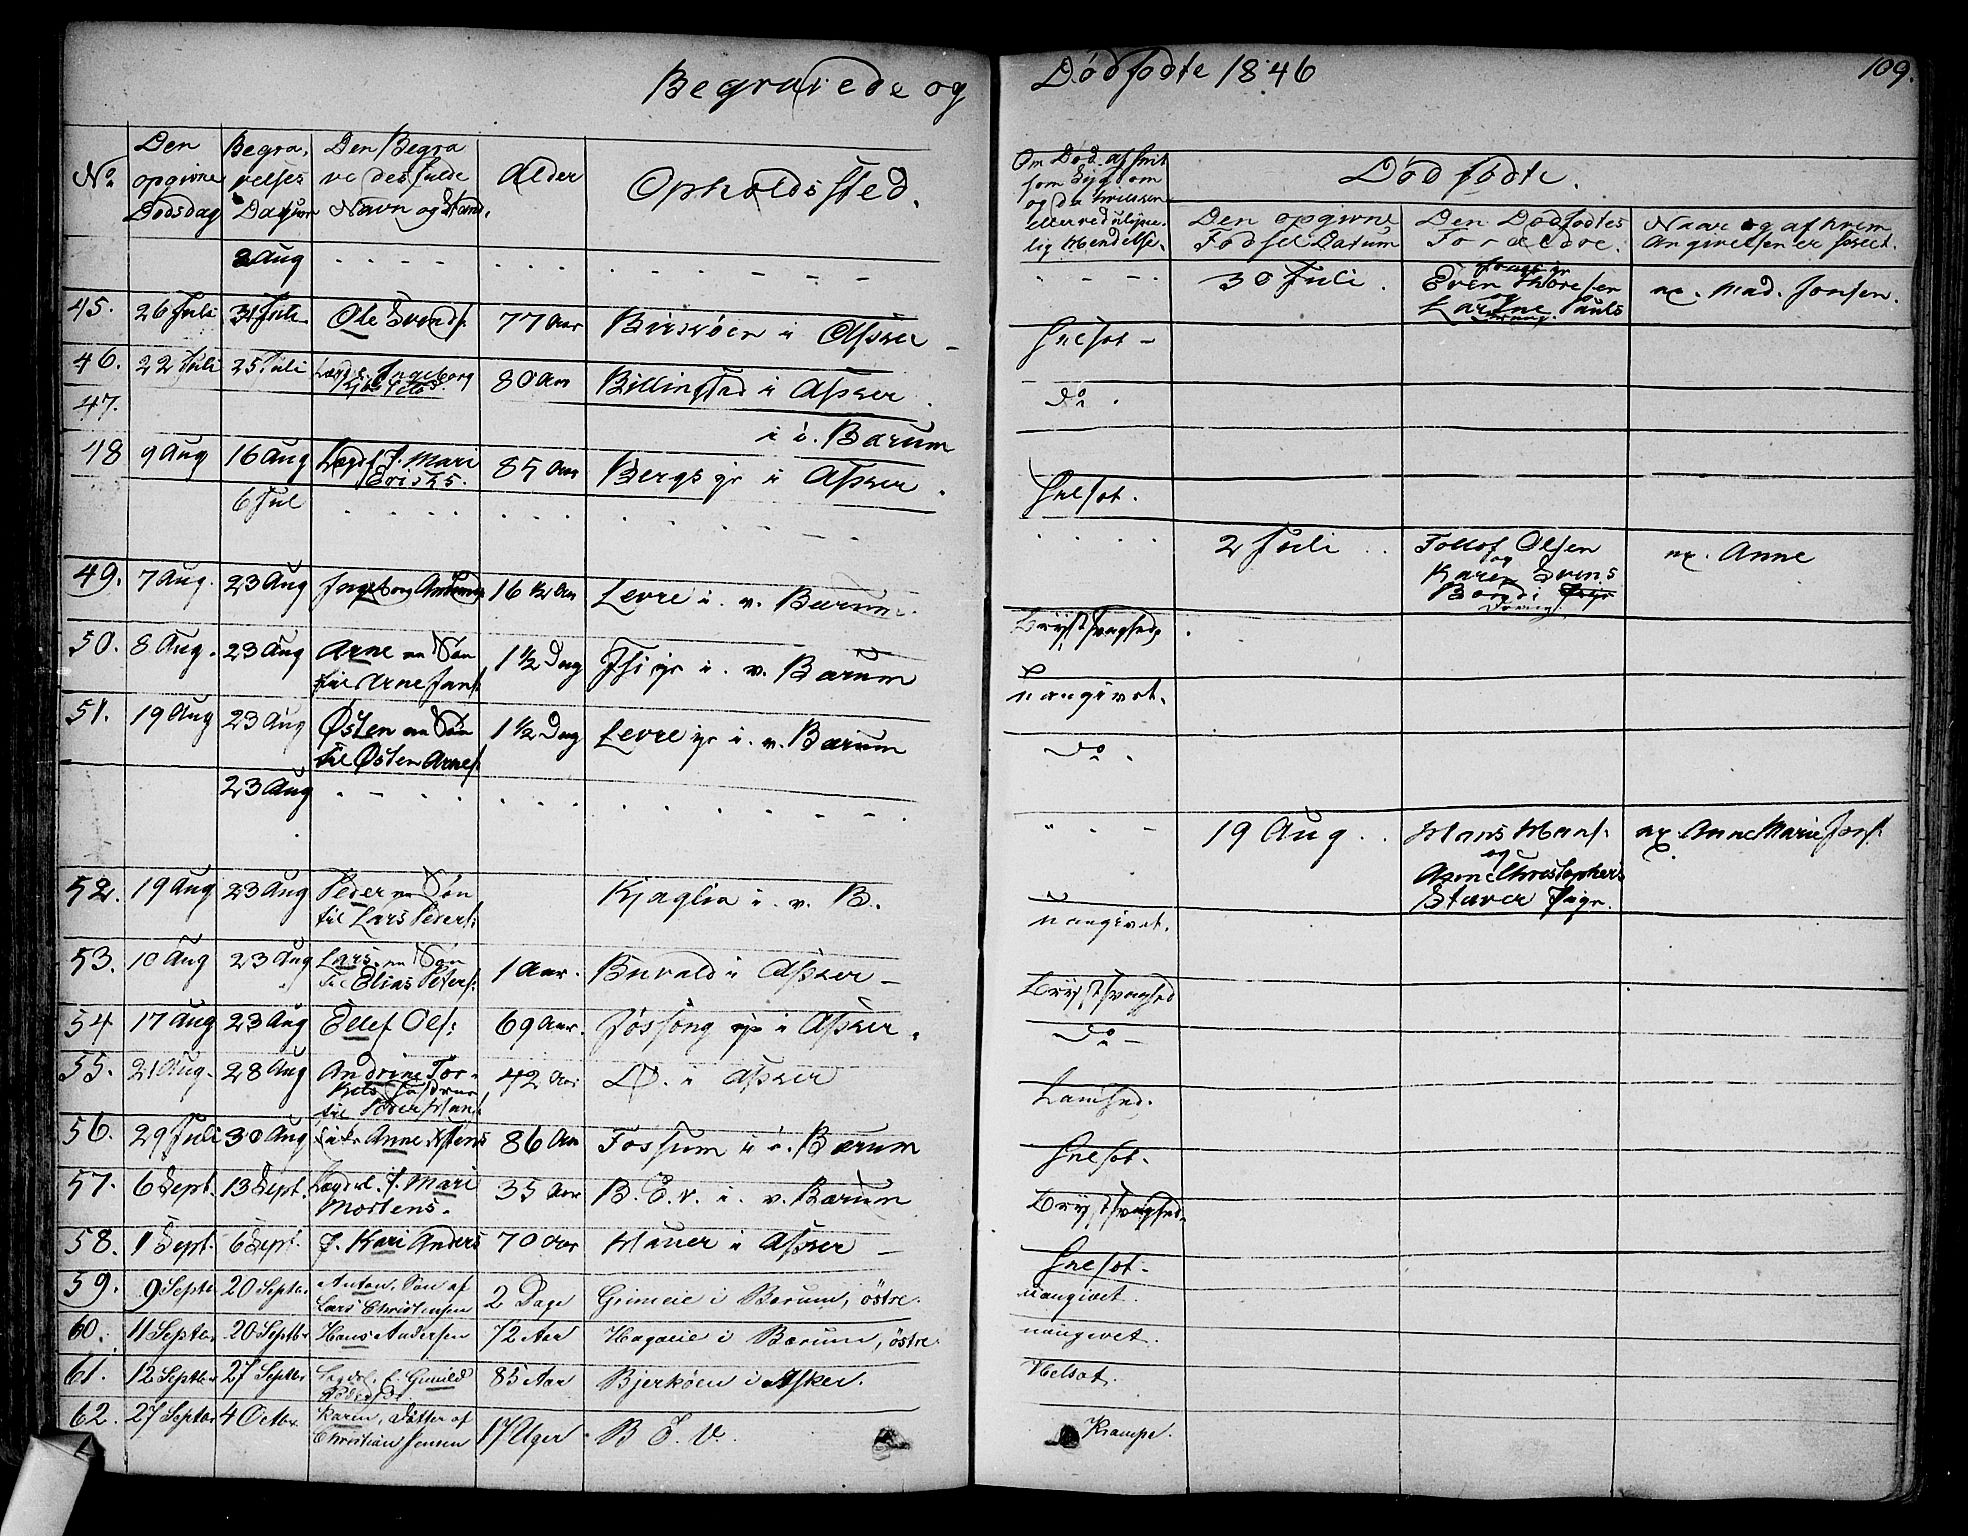 Begravede og Dødfødte 1846 109.
No Den opgivne Dødsdag Begravelses Datum Den Begravedes fulde Navn og Stand. Alder Opholdssted. Om Død af
som Sygdom
og da
eller ved ulykke-
lig Hendelse. Dødfødte.
Den opgivne Fødsel Datum Den Dødfødtes Forældre. Naar og af hvem Angivelsen er skeet.
2 Aug 30 Juli. Even Thoresen og Larine Pauls nx. Mad. Jonsen.
45. 26 Juli 31 Juli Ole Svends: 77 Aar Birkøen i Asker Hælsot
46. 22 Juli 25 Juli Lægdsl. Ingeborg 80 Aar Billingstad i Asker. Do.
47. i i. Barum
48 9 Aug 16 Aug Lægdsl. F. Mari Eriks. 85 Aar Bergs gr i Asker. Hælsot.
6 Jul 2 Juli Tollof Olsen og Karen Svens nx. Anne
49. 7 Aug. 23 Aug Ingeborg 16 1/2 Aar Levre i. v. Bærum Brystsvaghed.
50. 8 Aug. 23 Aug Arne en Søn til Arne Jans: 1 1/2 Dag i. v. Barum uangivet.
51. 19 Aug 23 Aug Østen en Søn til Østen Arnes: 1 1/2 Dag Levre gr i. v. Bærum Do.
23 Aug 19 Aug. Hans Hans: og Anne Christophers Staver Pige. nx. Anne Marie Jons:
52. 19 Aug 23 Aug Peder en Søn til Lars Peders: Kjaglia i. v. B. uangivet.
53. 10 Aug 23 Aug Lars en Søn til Elias Peters: 1 Aar. Bævald i Asker Brystsvaghed
54 17 Aug 23 Aug Ellef Ols: 69 Aar. Jøssong gr i Asker. Do
55. 21 Aug. 28 Aug Andrine Torkels til Peder Hans: 42 Aar i Asker Lamhed.
56. 29 Juli 30 Aug Enke Anne 86 Aar Fossum i i. Bærum Hælsot.
57. 6 Sept. 13 Sept. Lægdsl. F. Mari Mortens. 35 Aar B. E. V. i. v. Bærum Brystsvaghed.
58. 1 Sept. 6 Sept. F. Kari Anders 70 Aar Hauer i Asker Hælsot.
59. 9 Septe 20 Septbr. Anton, Søn af Lars Christensen 2 Dage Grineie i Bærum, østre. uangivet.
60. 11 Septbr 20 Septbr Hans Andersen 72 Aar Hagaeie i Bærum, østre uangivet.
61. 12 Septbr 27 Septbr Lægdsl. E. Gunild Pedersdr. 85 Aar Bjerkøen i Asker. Helsot.
62. 27 Septbr 4 Octbr. Karen, Datter af Christian Jensen 17 Uger B E. V. Krampe.